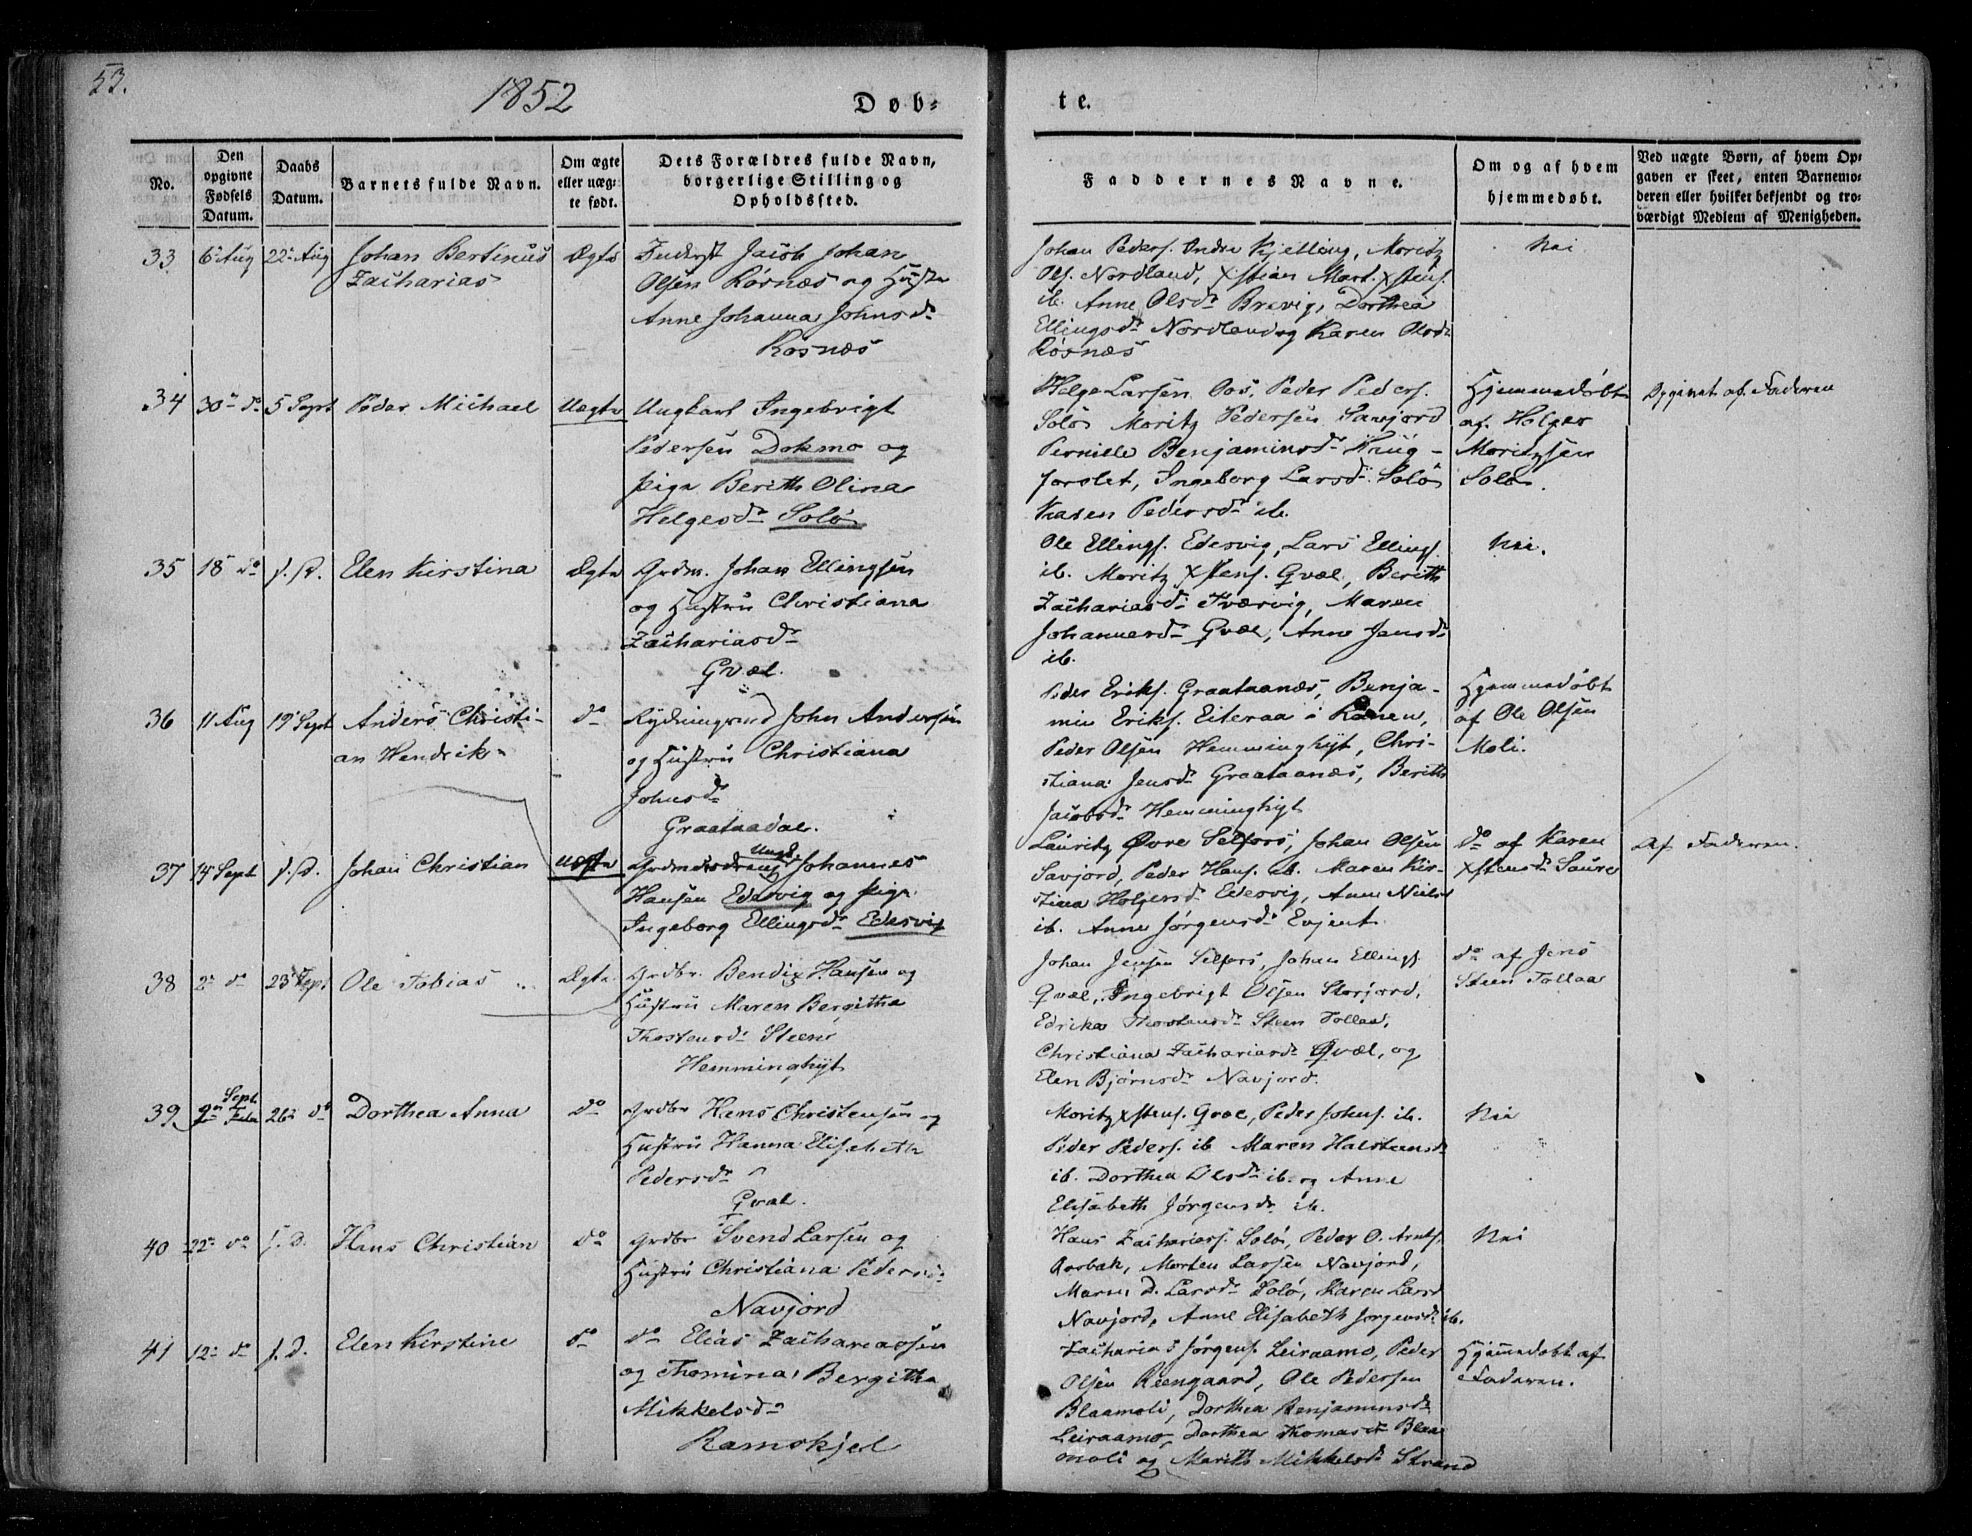 53.
1852
Døb-
te.
No.
Den opgivne Fødsels Datum.
Daabs Datum.
Barnets fulde Navn.
Om ægte eller uægte født.
Dets Forældres fulde Navn, borgerlige Stilling og Opholdssted.
Faddernes Navne.
Om og af hvem hjemmedøbt.
Ved uægte Børn, af hvem Opgaven er skeet, enten Barnemoderen eller hvilket bekjendt og troværdigt Medlem af Menigheden.
33
6 Aug
22 Aug
Johan Bertinus
Zacharias
Ægte
Inderst Jacob Johan
Olsen Rösnæs og Hustru
Anne Johanna Johnsdr
Rösnæs
Johan Peders. Kjelling, Moritz
Ols. Nordland, Xstian Mart. Xstens.
ib. Anne Olsdr Brevig, Dorthea
Ellingsdr Nordland og Karen Olsdr
Rösnæs
Nei
34
30 do
5 Sept
Peder Michael
Uægte
Ungkarl Ingebrigt
Pedersen Dokmo og
Pige Berith Olina
Helgesdr Solö
Helge Larsen Oos, Peder Peders.
Solö Moritz Pedersen Savjord
Pernille Benjaminsdr Haug-
forslet, Ingeborg Larsdr Solö
Karen Pedersdr ib.
Hjemmedöbt
af Holger
Moritzsen
Solö.
Opgivet af Faderen
35
18 do
s. D.
Elen Kirstina
Ægte
Grdm. Johan Ellingsen
og Hustru Christiana
Zachariasdr
Qvæl.
Ole Ellings. Edesvig, Lars Ellings.
ib. Moritz Xstens. Qvæl, Berith
Zachariasdr Tværvig, Maren
Johannesdr Qvæl, Anne Jensdr
ib.
Nei.
36
11 Aug
19 Sept
Anders Christi-
an Hendrik
do
Rydningsmd John Andersen
og Hustru Christiana
Johnsdr
Graataadal.
Peder Eriks. Graataanæs, Benja-
min Eriks. Eiteraa i Ranen,
Peder Olsen Hemminghyt, Chri-
stiana Jensdr Graataanæs, Berith
Jacobsdr Hemminghyt
Hjemmedöbt
af Ole Olsen
Moli.
37
14 Sept
s. D.
Johan Christian
Uægte
Ungk.
Johannes
Hansen Edesvig og Pige
Ingeborg Ellingsdr Edesvig
Lauritz Övre Selfors, Johan Olsen
Savjord, Peder Hans. ib. Maren Kir-
stina Holgersdr Edesvig, Anne Nielsd
ib. Anne Jörgensdr Evjent.
do af Karen
Xstensdr Saura
Af Faderen.
38
2 do
23 Sept
Ole Tobias
Ægte
Grdbr. Bendix Hansen og
Hustru Maren Bergitha
Thostensdr Steen
Hemminghyt
Johan Jensen Selfors, Johan Ellings.
Qvæl, Ingebrigt Olsen Storjord,
Edrika Thostensdr Steen Tollaa,
Christiana Zachariasdr Qvæl, og
Elen Björnsdr Navjord.
do af Jens
Steen Tollaa
39
Sept
9
26 do
Dorthea Anna
do
Grdbr Hans Christensen og
Hustru Hanna Elisabeth
Pedersdr
Qvæl.
Moritz Xstens. Qvæl, Peder Johns. ib.
Peder Peders. ib Maren Halsteensdr
ib. Dorthea Olsdr ib. og Anne
Elisabeth Jörgensdr ib.
Nei
40
22 do
s. D.
Hans Christian
do
Grdbr Svend Larsen og
Hustru Christiana Pedersdr
Navjord
Hans Zacharias. Solö, Peder O. Arnts.
Qorbak, Morten Larsen Navjord,
Maren D. Larsdr Solö, Karen Larsd
Navjord, Anne Elisabeth Jörgensdr ib.
Nei
41
12 do
s. D.
Elen Kirstine
do
do Elias Zachariassen
og Thomina Bergitha
Mikkelsdr
Ramskjel
Zacharias Jörgens. Leiraamo, Peder
Olsen Reengaard, Ole Pedersen
Blaamoli, Dorthea Benjaminsdr
Leiraamo, Dorthea Thomasdr Blaa
moli og Marith Mikkelsdr Strand
Hjemmedöbt af
Faderen.